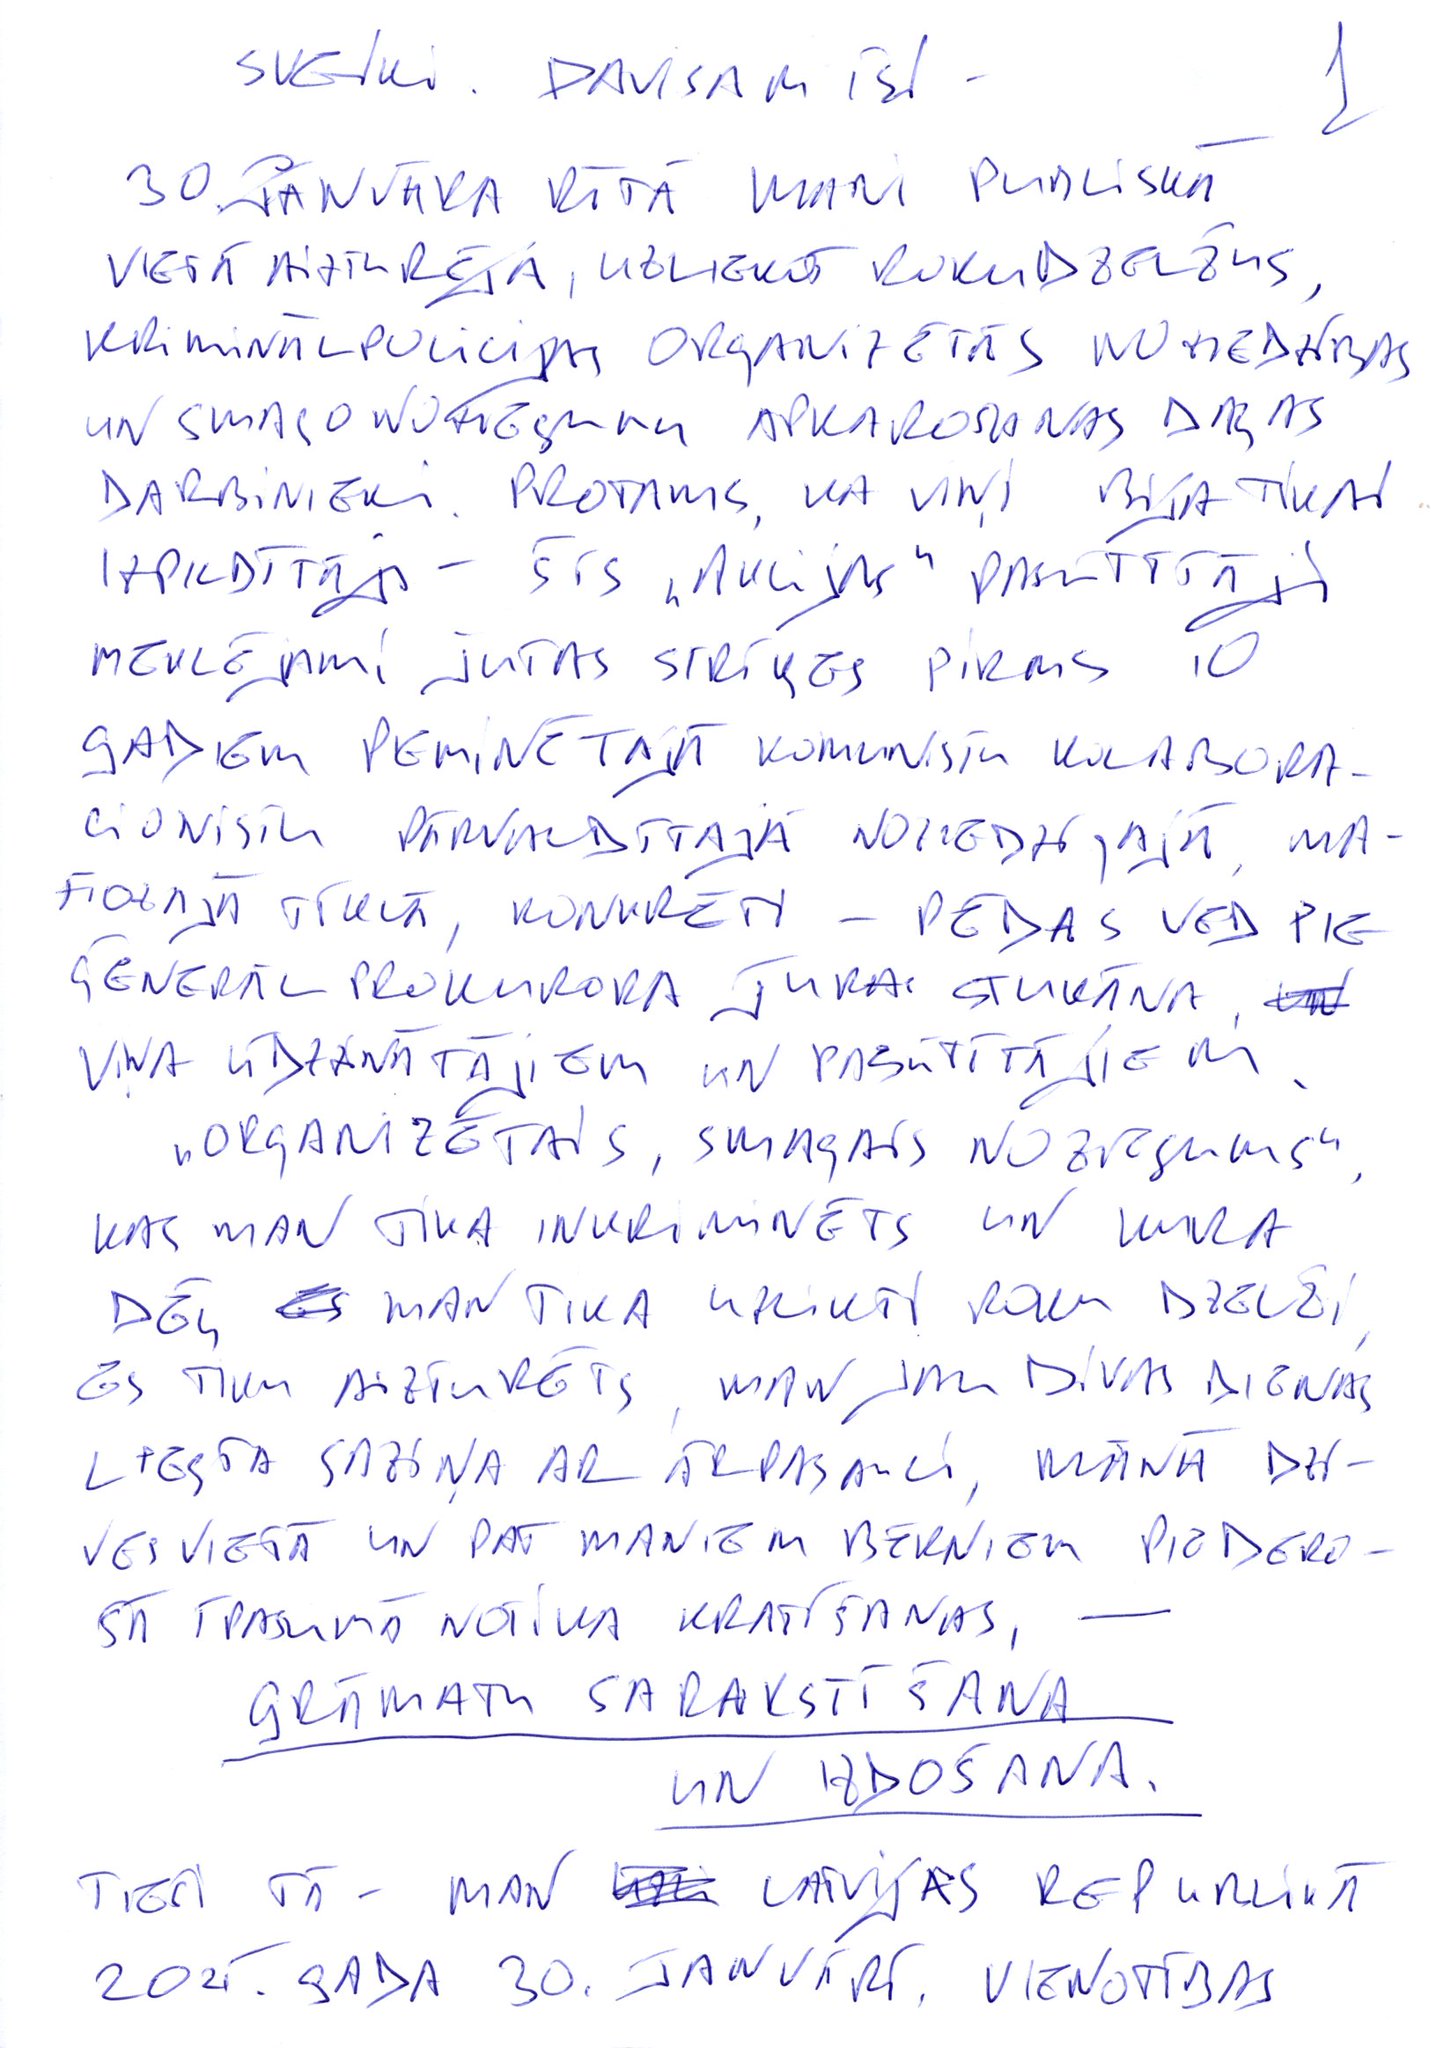 SVEIKI. PAVISAM ĪSI - 1
30. JANVĀRA RĪTĀ MANI PUBLISKĀ
VIETĀ AIZTURĒJA, UZLIEKOT ROKUDZELŽUS,
KRIMINĀLPOLICIJAS ORGANIZĒTĀS NOZIEDZĪBAS
UN SMAGO NOZIEGUMU APKAROŠANAS DAĻAS
DARBINIEKI. PROTAMS, KA VIŅI BIJA TIKAI
IZPILDĪTĀJI - ŠĪS „AKCIJAS" PASŪTĪTĀJI
MEKLĒJAMI JUTAS STRĪĶES PIRMS 10
GADIEM PEMINĒTAJĀ KOMUNISTU KOLABORA-
CIONISTU PĀRVALDĪTAJĀ NOZIEDZĪGAJĀ, MA-
FIOZAJĀ TĪKLĀ, KONKRĒTI - PĒDAS VED PIE
ĢENERĀLPROKURORA JURA STUKĀNA,
VIŅA LĪDZZINĀTĀJIEM UN PASŪTĪTĀJIEM.
„ORGANIZĒTAIS, SMAGAIS NOZIEGUMS",
KAS MAN TIKA INKRIMINĒTS UN KURA
DĒĻ MAN TIKA UZLIKTI ROKU DZELŽI,
ES TIKU AIZTURĒTS, MAN JAU DIVAS DIENAS
LIEGTA SAZIŅA AR ĀRPASAULI, MANĀ DZĪ-
VESVIETĀ UN PAT MANIEM BĒRNIEM PIEDERO-
ŠĀ ĪPAŠUMĀ NOTIKA KRATĪŠANAS, —
GRĀMATU SARAKSTĪŠANA
UN IZDOŠANA.
TIEŠI TĀ - MAN LATVIJAS REPUBLIKĀ
2025. GADA 30. JANVĀRĪ, VIENOTĪBAS